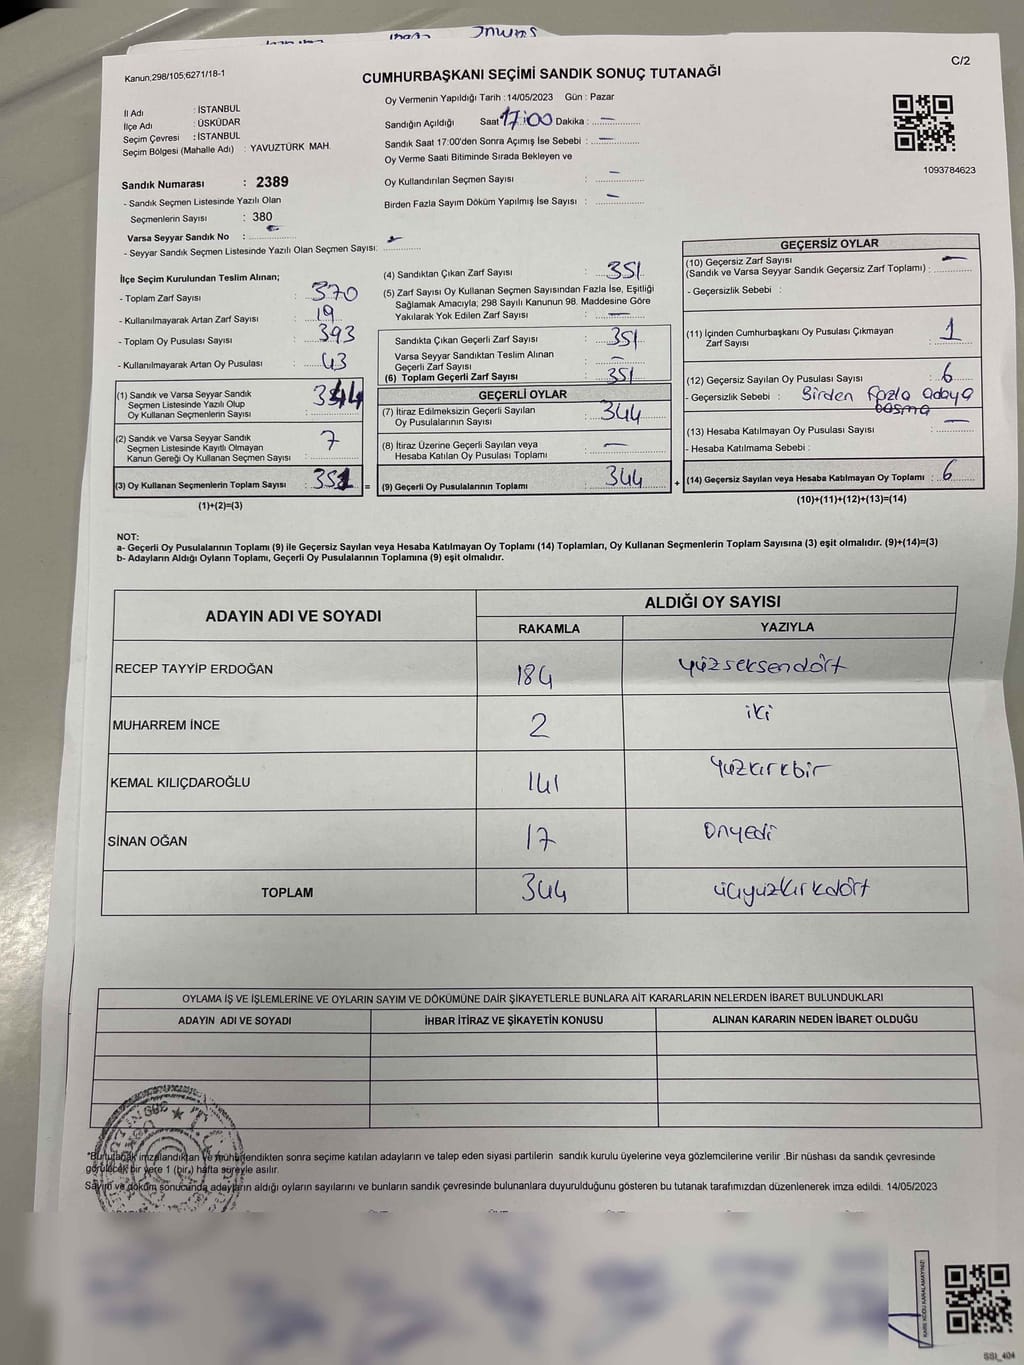 Kanun;298/105;6271/18-1
CUMHURBAŞKANI SEÇİMİ SANDIK SONUÇ TUTANAĞI
C/2
İl Adı : İSTANBUL
İlçe Adı : ÜSKÜDAR
Seçim Çevresi : İSTANBUL
Seçim Bölgesi (Mahalle Adı) : YAVUZTÜRK MAH.
Oy Vermenin Yapıldığı Tarih :14/05/2023 Gün : Pazar
Sandığın Açıldığı Saat 17:00 Dakika : —
Sandık Saat 17:00'den Sonra Açımış İse Sebebi : —
Oy Verme Saati Bitiminde Sırada Bekleyen ve
Oy Kullandırılan Seçmen Sayısı : —
Birden Fazla Sayım Döküm Yapılmış İse Sayısı : —
1093784623
Sandık Numarası : 2389
- Sandık Seçmen Listesinde Yazılı Olan
Seçmenlerin Sayısı : 380
Varsa Seyyar Sandık No : —
- Seyyar Sandık Seçmen Listesinde Yazılı Olan Seçmen Sayısı: —
İlçe Seçim Kurulundan Teslim Alınan;
- Toplam Zarf Sayısı : 370
- Kullanılmayarak Artan Zarf Sayısı : 19
- Toplam Oy Pusulası Sayısı : 393
- Kullanılmayarak Artan Oy Pusulası : 43
(1) Sandık ve Varsa Seyyar Sandık
Seçmen Listesinde Yazılı Olup
Oy Kullanan Seçmenlerin Sayısı : 344
(2) Sandık ve Varsa Seyyar Sandık
Seçmen Listesinde Kayıtlı Olmayan
Kanun Gereği Oy Kullanan Seçmen Sayısı : 7
(3) Oy Kullanan Seçmenlerin Toplam Sayısı : 351 =
(1)+(2)=(3)
(4) Sandıktan Çıkan Zarf Sayısı : 351
(5) Zarf Sayısı Oy Kullanan Seçmen Sayısından Fazla İse, Eşitliği
Sağlamak Amacıyla; 298 Sayılı Kanunun 98. Maddesine Göre
Yakılarak Yok Edilen Zarf Sayısı : —
Sandıkta Çıkan Geçerli Zarf Sayısı : 351
Varsa Seyyar Sandıktan Teslim Alınan
Geçerli Zarf Sayısı : —
(6) Toplam Geçerli Zarf Sayısı : 351
GEÇERLİ OYLAR
(7) İtiraz Edilmeksizin Geçerli Sayılan
Oy Pusulalarının Sayısı : 344
(8) İtiraz Üzerine Geçerli Sayılan veya
Hesaba Katılan Oy Pusulası Toplamı : —
(9) Geçerli Oy Pusulalarının Toplamı : 344 +
GEÇERSİZ OYLAR
(10) Geçersiz Zarf Sayısı
(Sandık ve Varsa Seyyar Sandık Geçersiz Zarf Toplamı) : —
- Geçersizlik Sebebi :
(11) İçinden Cumhurbaşkanı Oy Pusulası Çıkmayan
Zarf Sayısı : 1
(12) Geçersiz Sayılan Oy Pusulası Sayısı : 6
- Geçersizlik Sebebi : Birden fazla adaya
basma
(13) Hesaba Katılmayan Oy Pusulası Sayısı : —
- Hesaba Katılmama Sebebi :
(14) Geçersiz Sayılan veya Hesaba Katılmayan Oy Toplamı : 6
(10)+(11)+(12)+(13)=(14)
NOT:
a- Geçerli Oy Pusulalarının Toplamı (9) ile Geçersiz Sayılan veya Hesaba Katılmayan Oy Toplamı (14) Toplamları, Oy Kullanan Seçmenlerin Toplam Sayısına (3) eşit olmalıdır. (9)+(14)=(3)
b- Adayların Aldığı Oyların Toplamı, Geçerli Oy Pusulalarının Toplamına (9) eşit olmalıdır.
ADAYIN ADI VE SOYADI
ALDIĞI OY SAYISI
RAKAMLA YAZIYLA
RECEP TAYYİP ERDOĞAN 184 yüzseksendört
MUHARREM İNCE 2 iki
KEMAL KILIÇDAROĞLU 141 yüzkırkbir
SİNAN OĞAN 17 onyedi
TOPLAM 344 üçyüzkırkdört
OYLAMA İŞ VE İŞLEMLERİNE VE OYLARIN SAYIM VE DÖKÜMÜNE DAİR ŞİKAYETLERLE BUNLARA AİT KARARLARIN NELERDEN İBARET BULUNDUKLARI
ADAYIN ADI VE SOYADI İHBAR İTİRAZ VE ŞİKAYETİN KONUSU ALINAN KARARIN NEDEN İBARET OLDUĞU
*Bu tutanak imzalandıktan ve mühürlendikten sonra seçime katılan adayların ve talep eden siyasi partilerin sandık kurulu üyelerine veya gözlemcilerine verilir .Bir nüshası da sandık çevresinde
görülecek bir yere 1 (bir) hafta süreyle asılır.
Sayım ve döküm sonucunda adayların aldığı oyların sayılarını ve bunların sandık çevresinde bulunanlara duyurulduğunu gösteren bu tutanak tarafımızdan düzenlenerek imza edildi. 14/05/2023
KARE KODU KARALAMAYINIZ!
SSI_404